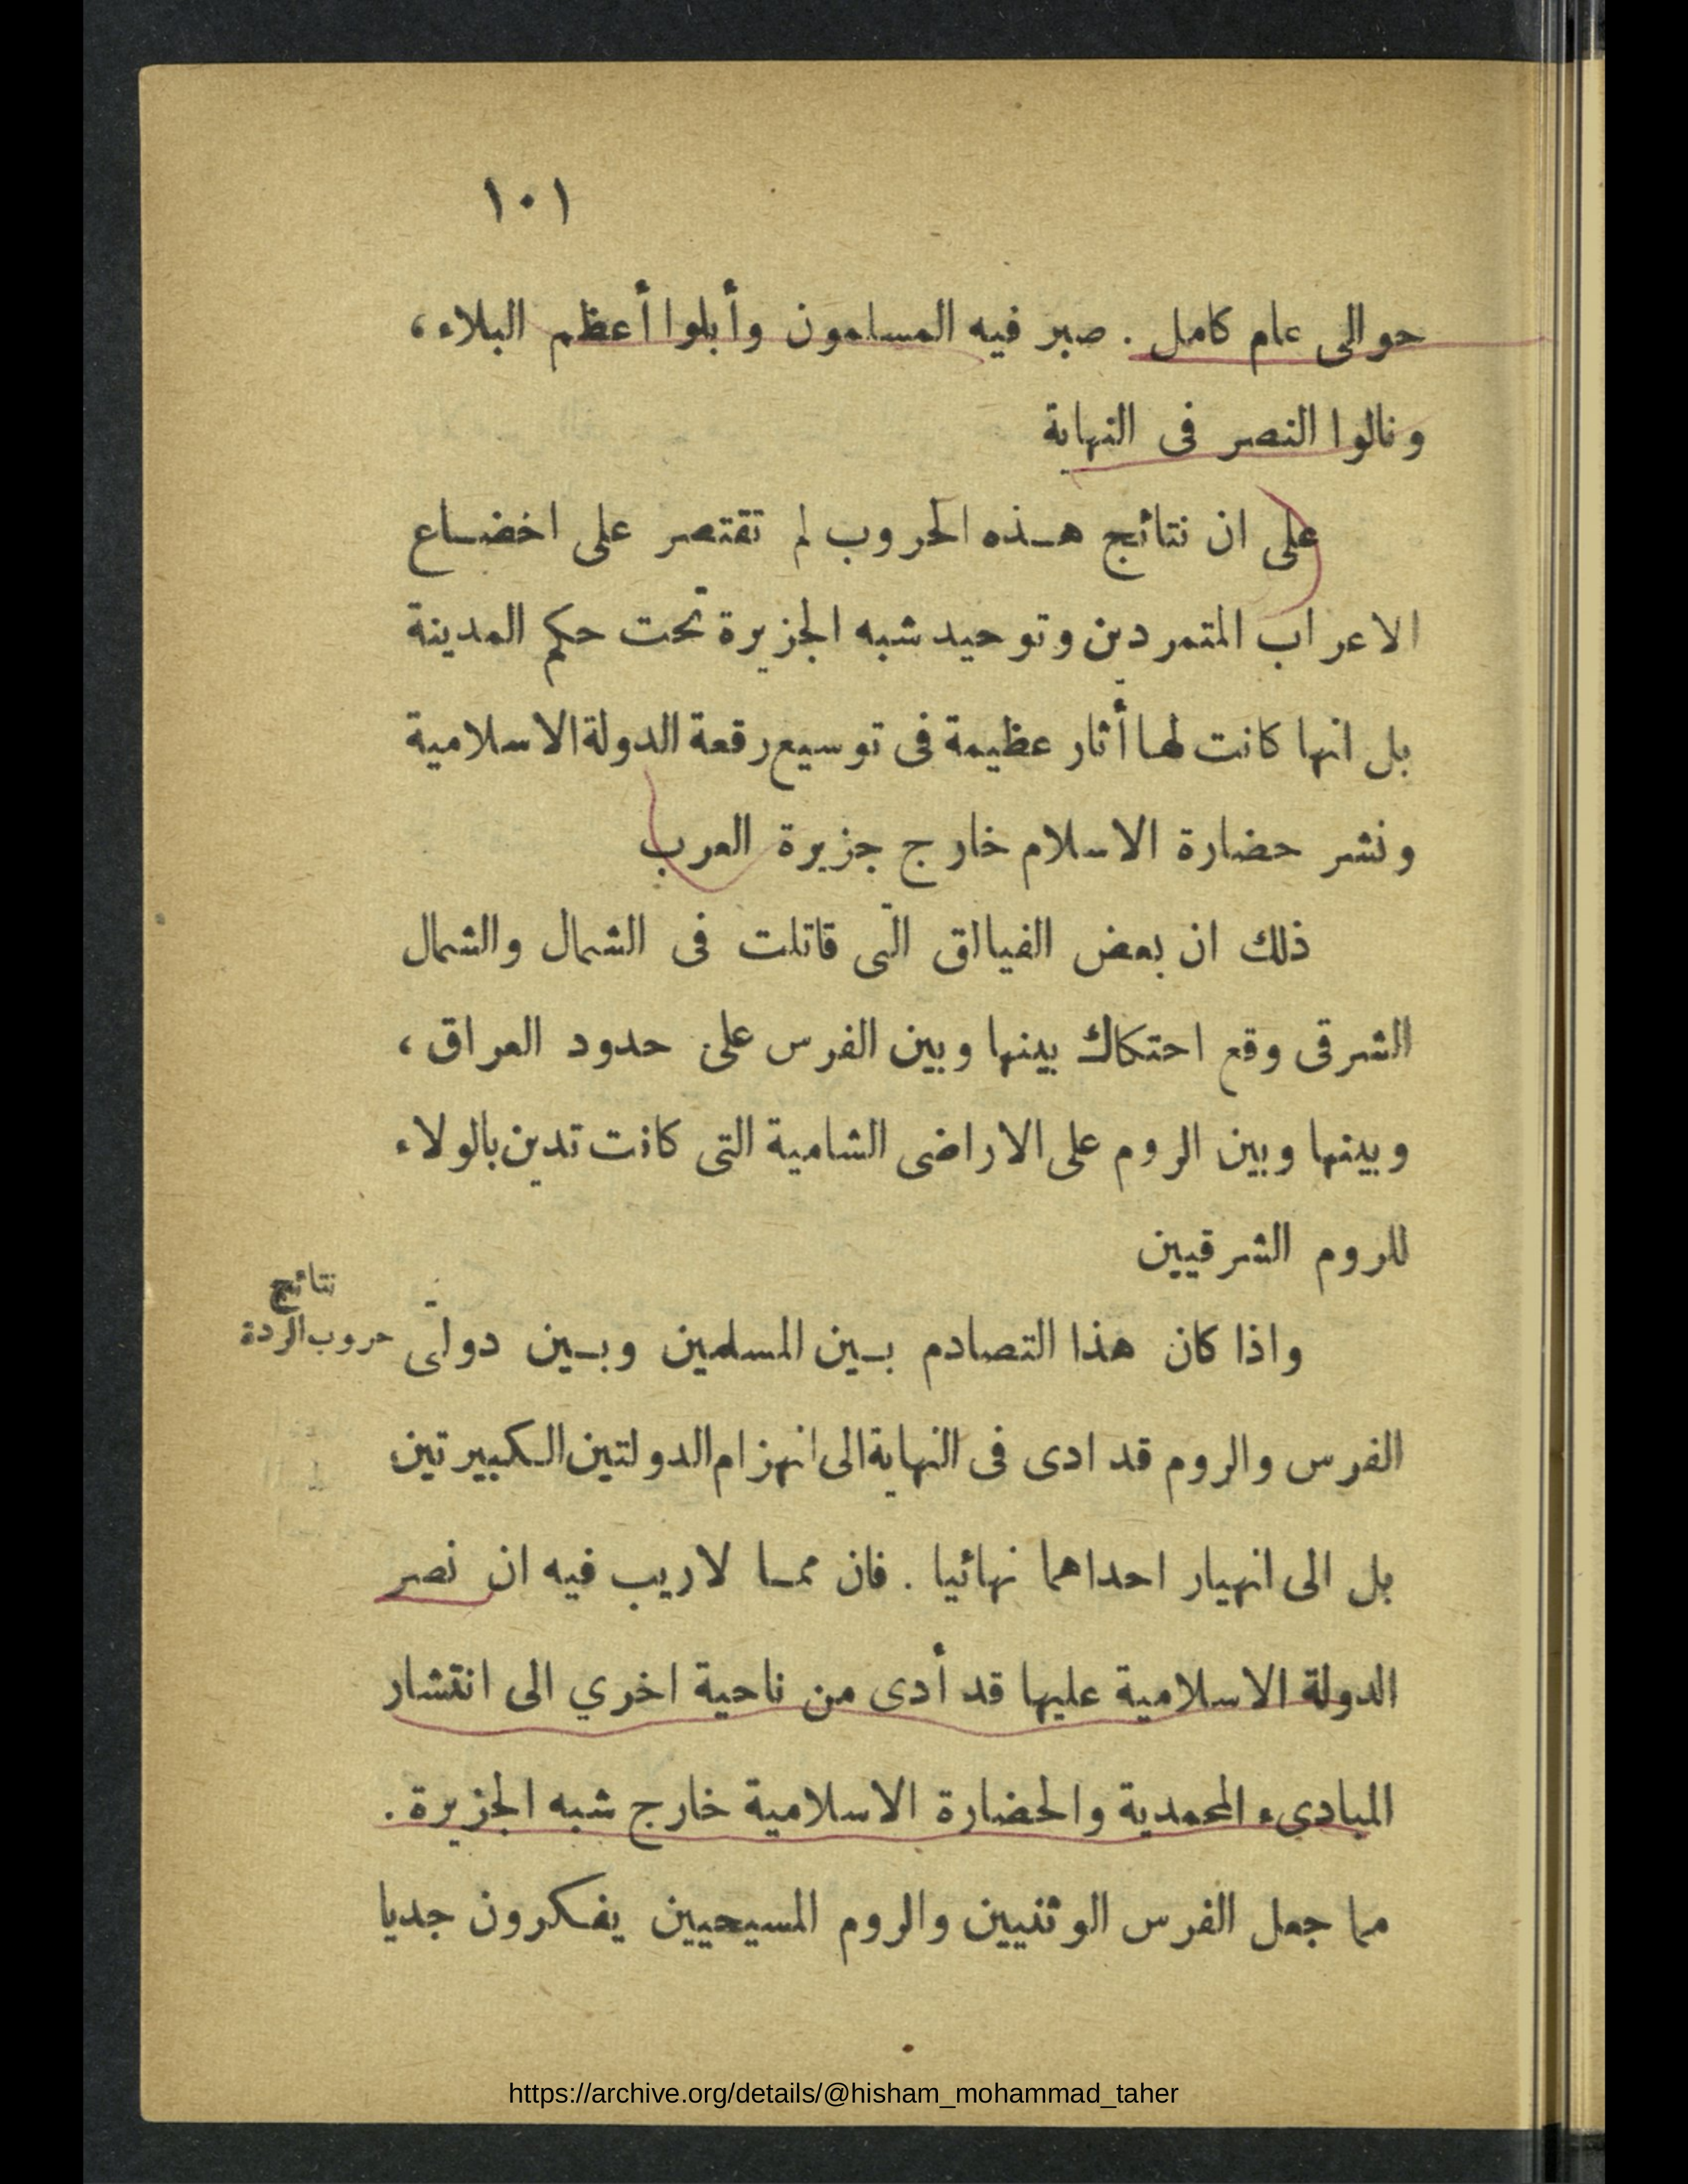 ١٠١
حوالى عام كامل . صبر فيه المسلمون وأبلوا أعظم البلاء ،
ونالوا النصر فى النهاية
على ان نتائج هـذه الحروب لم تقتصر على اخضـاع
الاعراب المتمردين وتوحيد شبه الجزيرة تحت حكم المدينة
بل انها كانت لهـا أثار عظيمة فى توسيع رقعة الدولة الاسلامية
ونشر حضارة الاسلام خارج جزيرة العرب
ذلك ان بعض الفيالق التى قاتلت فى الشمال والشمال
الشرقى وقع احتكاك بينها وبين الفرس على حدود العراق ،
وبينها وبين الروم على الاراضى الشامية التى كانت تدين بالولاء
للروم الشرقيين
نتائج
حروب الردة
واذا كان هذا التصادم بـين المسلمين وبـين دولتى
الفرس والروم قد ادى فى النهاية الى انهزام الدولتين الـكبيرتين
بل الى انهيار احداهما نهائيا . فان ممـا لاريب فيه ان نصر
الدولة الاسلامية عليها قد أدى من ناحية اخري الى انتشار
المبادىء المحمدية والحضارة الاسلامية خارج شبه الجزيرة .
مما جعل الفرس الوثنيين والروم المسيحيين يفـكرون جديا
https://archive.org/details/@hisham_mohammad_taher